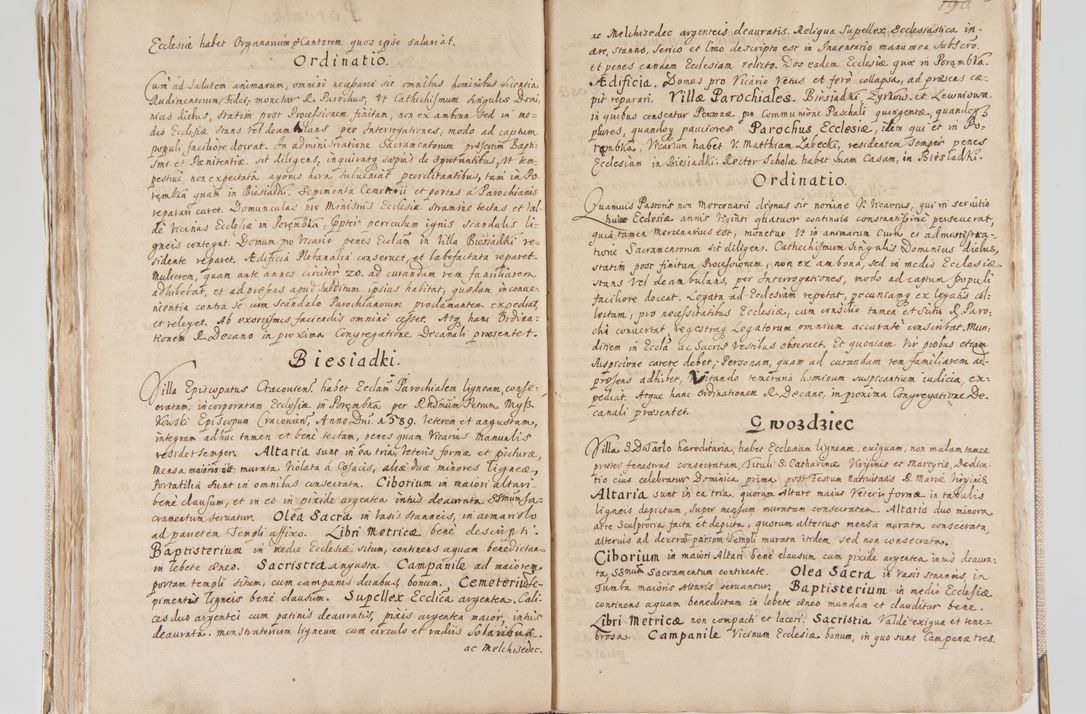 Ecclesiæ habet Organarium et Cantorem quos ipse salariat.
Ordinatio.
Cum ad salutem animarum, omnino necessaria sit omnibus hominibus scientia
Rudimentorum Fidei, monetur R. Parochus, Vt Cathechismum singulis Domi-
nicis diebus, statim post Processionem finitam, non ex ambona sed in me-
dio Ecclesiæ stans vel deambulans per Interrogationes, modo ad captum
populi faciliore doceat. In administratione Sacramentorum præsertim Bapti-
smi et Pœnitentiæ sit diligens, inquirat sæpius de ægrotantibus, Vt tem-
pestivè non expectata agonis hora subveniat periclitantibus, tam in Po-
rembka quam in Biesiadki. Sepimenta Cemeterii et portas a Parochianis
reparari curet. Domunculas pro Ministris Ecclesiæ stramine tectas et Val-
dè vicinas Ecclesiæ in Porembka, propter periculum ignis scandulis li-
gneis contegat. Domum pro Vicario penes Ecclam in Villa Biesiadki re-
sidente reparet. Ædificia Plebanalia conservet, et labefactata reparet.
Mulierem, quam ante annos circiter 20. ad curandam rem familiarem
adhibebat, et ad præsens apud subditum ipsius habitat, quædam in conve-
nientia contra se cum scandalo Parochianorum proclamantem expediat,
et releget. Ab exorcismis faciendis omnino cesset. Atq; hanc Ordina-
tionem R. Decano in proxima Congregatione Decanali præsentet.
Biesiadki.
Villa Episcopatus Cracovien: habet Ecclam Parochialem ligneam, conse-
cratam, incorporatam Ecclesiæ in Porembka per R̃ndmum Petrum Mysz-
kowski Episcopum Cracovien: Anno Dni. 1589. Veterem et angustam,
integram adhuc tamen et benè tectam, penes quam Vicarius manualis
residet semper. Altaria sunt in ea tria, Veteris formæ et picturæ,
Mensa maioris est murata Violata à Cosacis, aliæ duæ minores ligneæ,
Portatilia sunt in omnibus consecrata. Ciborium in maiori altari
benè clausum, et in eo in pixide argentea intus deaurata SSmum Sa-
cramentum servatur. Olea Sacra in Vasis stanneis, in armariolo
ad parietem Templi affixo. Libri Metricæ benè descripti.
Baptisterium in medio Ecclesiæ situm, continens aquam benedictam
in lebete æneo. Sacristia angusta. Campanile ad maiorem
portam templi situm, cum campanis duabus, bonum. Cemeterium se-
pimentis ligneis benè clausum. Supellex Ecclica argentea. Cali-
ces duo argentei cum patinis deauratis, pixis argentea maior, intus
deaurata. monstratorium ligneum cum circulo et radiis solaribus
ac Melchisedec.
ac Melchisedec argenteis deauratis. Reliqua Supellex Ecclesiastica in-
ære, stanno, serico et lino descripta est in Inventario manu mea subscro.
et penes eandem Ecclesiam relicto. Dos eadem Ecclesiæ quæ in Porąmbka.
Ædificia. Domus pro Vicario Vetus et ferè collapsa, ad præsens cæ-
pit reparari. Villæ Parochiales. Biesiadki, Zyrkow. et Lewniowa.
in quibus censentur Personæ pro Communione Paschali quingentæ, quandoq;
plures, quandoq; pauciores Parochus Ecclesiæ, idem qui et in Po-
rembka, Vicarium habet V. Matthiam Zabecki, residentem semper penes
Ecclesiam in Biesiadki. Rector Scholæ habet suam Casam, in Biesiadki.
Ordinatio.
Quamvis Pastoris non Mercenarii dignus sit nomine V. Vicarius, qui in servitio
huius Ecclesiæ annis Viginti quatuor continuis constantissimè perseverat,
quia tamen Mercenarius est, monetur Vt in animarum Cura et administra-
tione Sacramentorum sit diligens. Cathechismum singulis Dominicis diebus,
statim post finitam Processionem, non ex ambona, sed in medio Ecclesiæ
stans vel deambulans, per Interrogationes, modo ad captum populi
faciliore doceat. Legata ad Ecclesiam repetat, pecuniamq; ex legatis col-
lectam, pro necessitatibus Ecclesiæ, cum consilio tamen et scitu R. Paro-
chi convertat, regestraq; Legatorum omnium accuratè conscribat. Mun-
ditiem in Eccla ac Sacris Vestibus observet. Et quoniam Vir probus etiam
suspicione carere debet, Personam, quam ad curandam rem familiarem ad
præsens adhibet, Vitando temeraria hominum suspicantium iudicia, ex-
pediat. Atque hanc Ordinationem R. Decano, in proxima Congregatione De-
canali præsentet.
Gwozdziec
Villa G. D Tarło hæreditaria, habet Ecclesiam ligneam, exiguam, non malam tamen
præter fenestras consecratam, Tituli S. Catharinæ Virginis et Martyris, Dedica-
tio eius celebratur Dominica prima post Festum Nativitatis B. Mariæ Virginis
Altaria sunt in ea tria, quorum Altare maius Veteris formæ in tabulis
ligneis depictum, super mensam muratam consecratam. Altaria duo minora
arte Sculptoria facta et depicta, quorum alterius mensa murata consecrata,
alterius ad dexteram partem Templi murata itidem sed non consecrata.
Ciborium in maiori Altari benè clausum cum pixide argentea intus deaura-
ta, SSmum Sacramentum continente. Olea Sacra in Vasis stanneis, in
Tumba maioris Altaris servantur. Baptisterium in medio Ecclesiæ
continens aquam benedictam in lebete æneo mundam et clauditur bene.
Libri Metricæ non compacti et laceri. Sacristia Valdè exigua et tene-
brosa. Campanile Vicinum Ecclesiæ bonum, in quo sunt Campanæ tres.